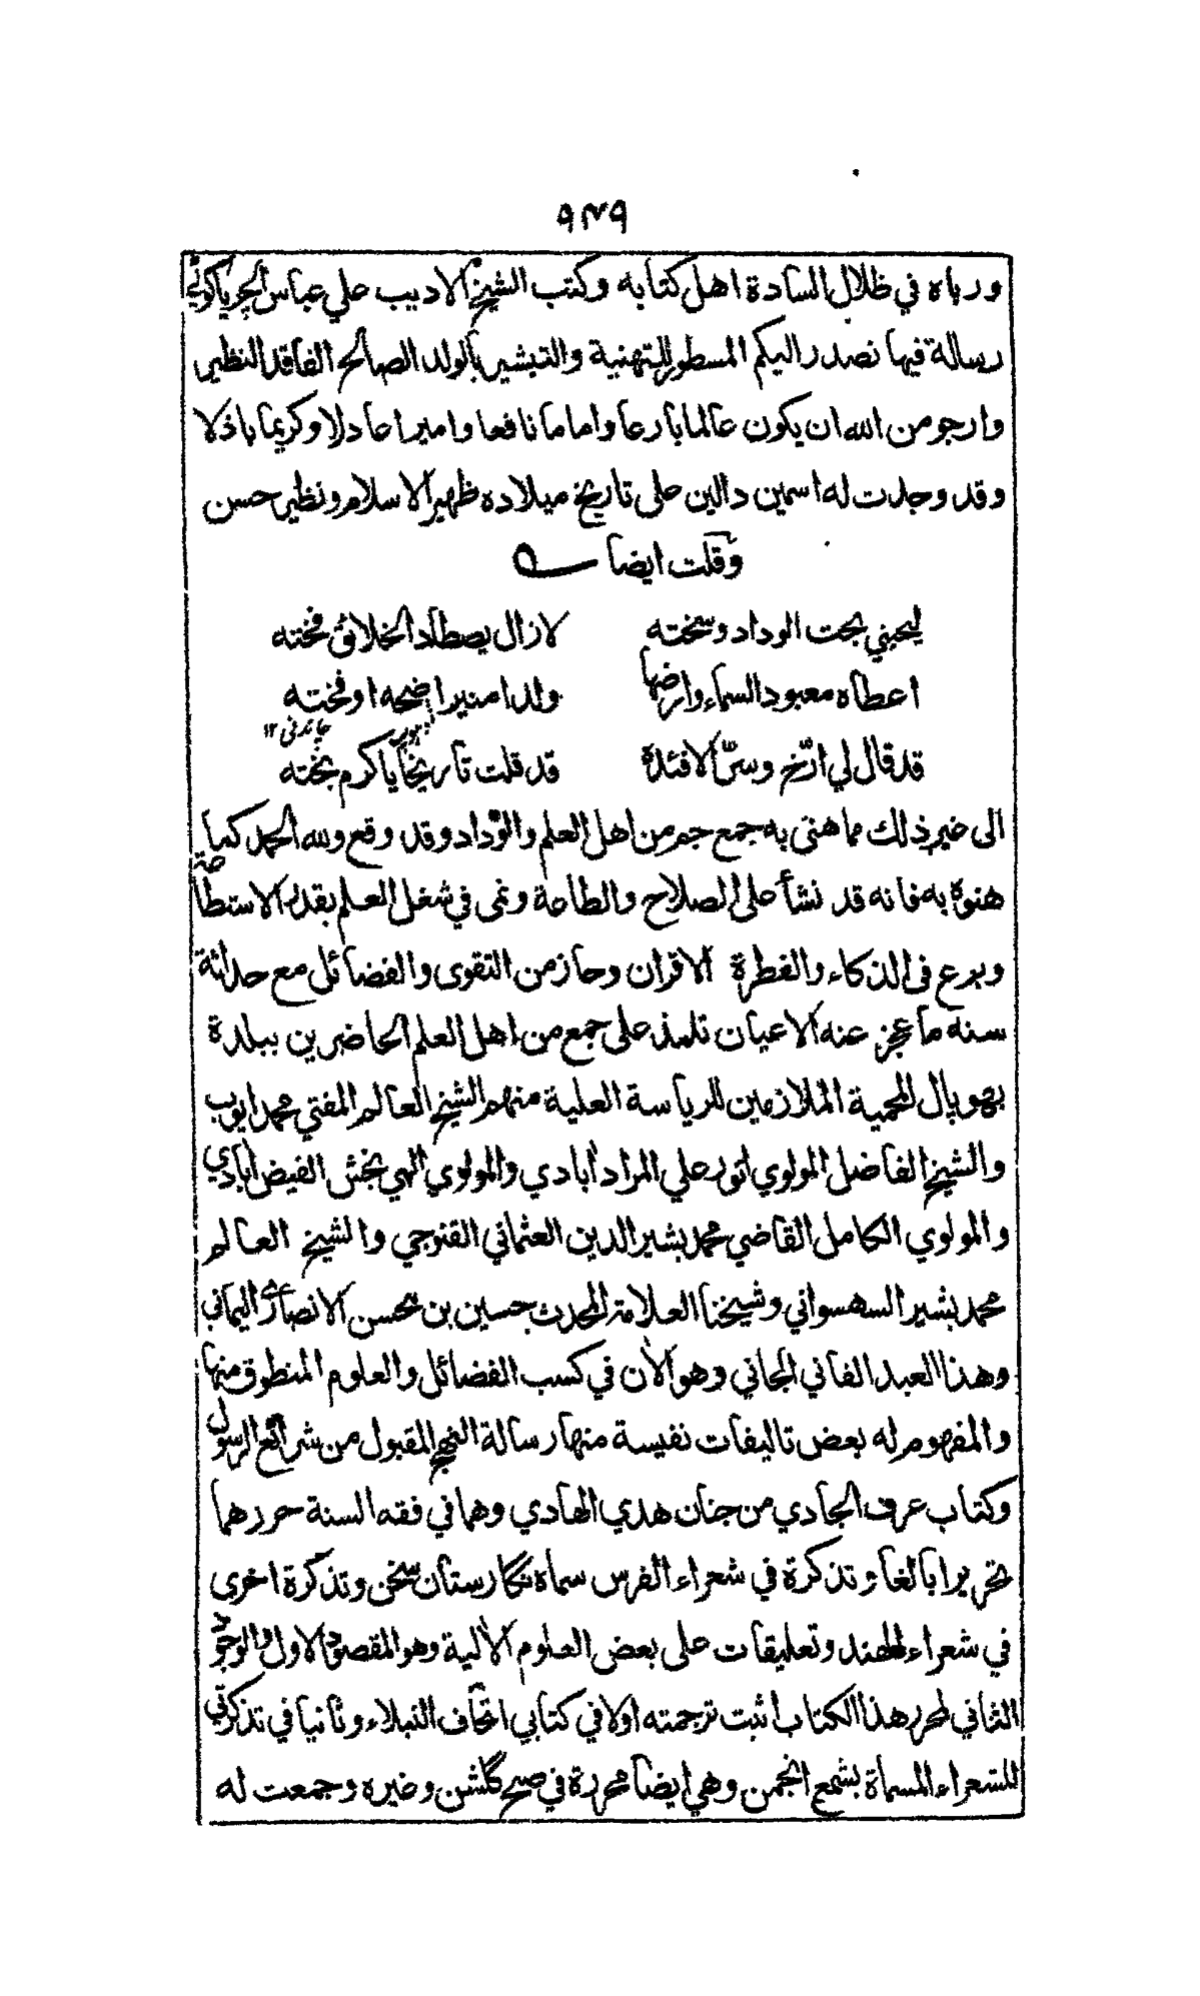 ٩٣٩
ورباه في ظلال السادة اهل كتابه وكتب الشيخ الاديب علي عباس الچرياكوٹي
رسالة فيها نصدر اليكم المسطور للتهنية والتبشير بالولد الصالح الفاقد النظير
وارجو من الله ان يكون عالما بارعا واماما نافعا واميرا عادلا وكريما باذلا
وقد وجدت له اسمين دالين على تاريخ ميلاده ظهير الاسلام ونظير حسن
وقلت ايضا
ليحيني بحت الوداد وسخته لازال يصطاد الخلائق فخته
اعطاه معبود السماء وارضها ولدا منيرا ضيحه او فخته
چاندنی ١٢
قد قال لي ارّخ وسرّ الافئدة قد قلت تاريخا يا كرم بخته
الى غير ذلك مما هنى به جمع جم من اهل العلم والوداد وقد وقع ولله الحمد كما
هنوه به فانه قد نشأ على الصلاح والطاعة ونمى في شغل العلم بقدر الاستطاعة
وبرع في الذكاء والفطرة الاقران وحاز من التقوى والفضائل مع حداثة
سنه ما عجز عنه الاعيان تلمذ على جمع من اهل العلم الحاضرين ببلدة
بهوپال المحمية الملازمين للرياسة العلية منهم الشيخ العالم المفتي محمد ايوب
والشيخ الفاضل المولوي انور علي المرادابادي والمولوي الهي بخش الفيض ابادي
والمولوي الكامل القاضي محمد بشير الدين العثماني القنوجي والشيخ العالم
محمد بشير السهسواني وشيخنا العلامة المحدث حسين بن محسن الانصاري اليماني
وهذا العبد الفاني الجاني وهو الآن في كسب الفضائل والعلوم المنطوق منها
والمفهوم له بعض تاليفات نفيسة منها رسالة النهج المقبول من شرائع الرسول
وكتاب عرف الجادي من جنان هدي الهادي وهما في فقه السنة حررهما
تحريرا بالغا وتذكرة في شعراء الفرس سماه نگارستان سخن وتذكرة اخرى
في شعراء الهند وتعليقات على بعض العلوم الآلية وهو المقصود الاول والوجود
الثاني لمحرر هذا الكتاب اثبت ترجمته اولا في كتابي اتحاف النبلاء وثانيا في تذكرتي
للشعراء المسماة بشمع انجمن وهي ايضا محررة في صبح گلشن وغيره وجمعت له